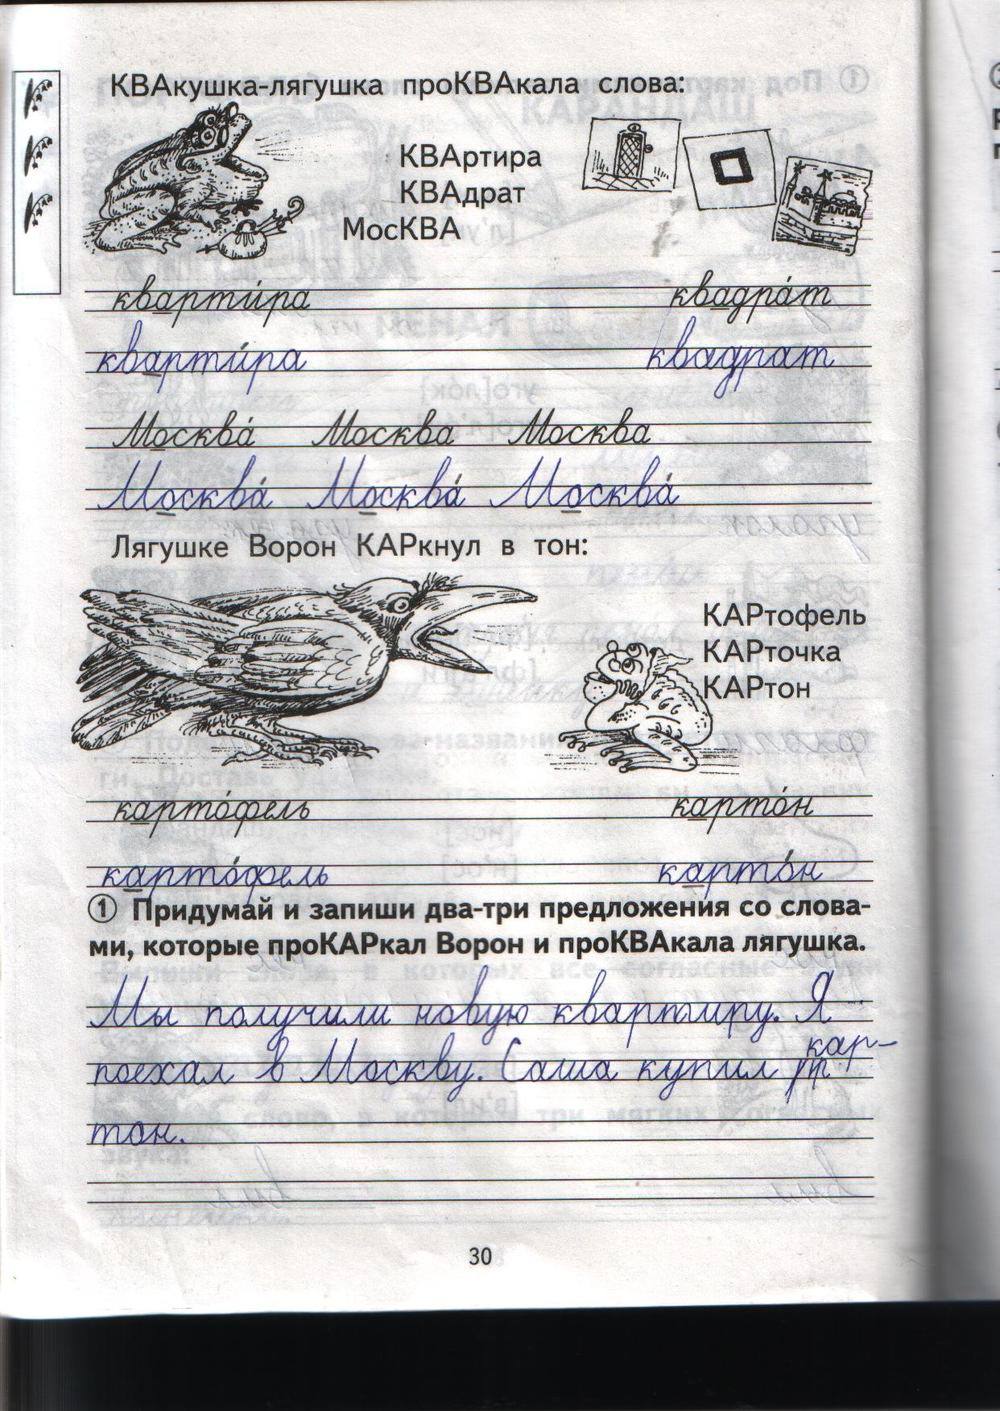 КВАкушка-лягушка проКВАкала слова:
КВАртира
КВАдрат
МосКВА
кварти́ра квадра́т
кварти́ра квадрат
Москва́ Москва Москва
Москва́ Москва́ Москва́
Лягушке Ворон КАРкнул в тон:
КАРтофель
КАРточка
КАРтон
карто́фель карто́н
карто́фель карто́н
① Придумай и запиши два-три предложения со слова-
ми, которые проКАРкал Ворон и проКВАкала лягушка.
Мы получили новую квартиру. Я
поехал в Москву. Саша купил кар-
тон.
30